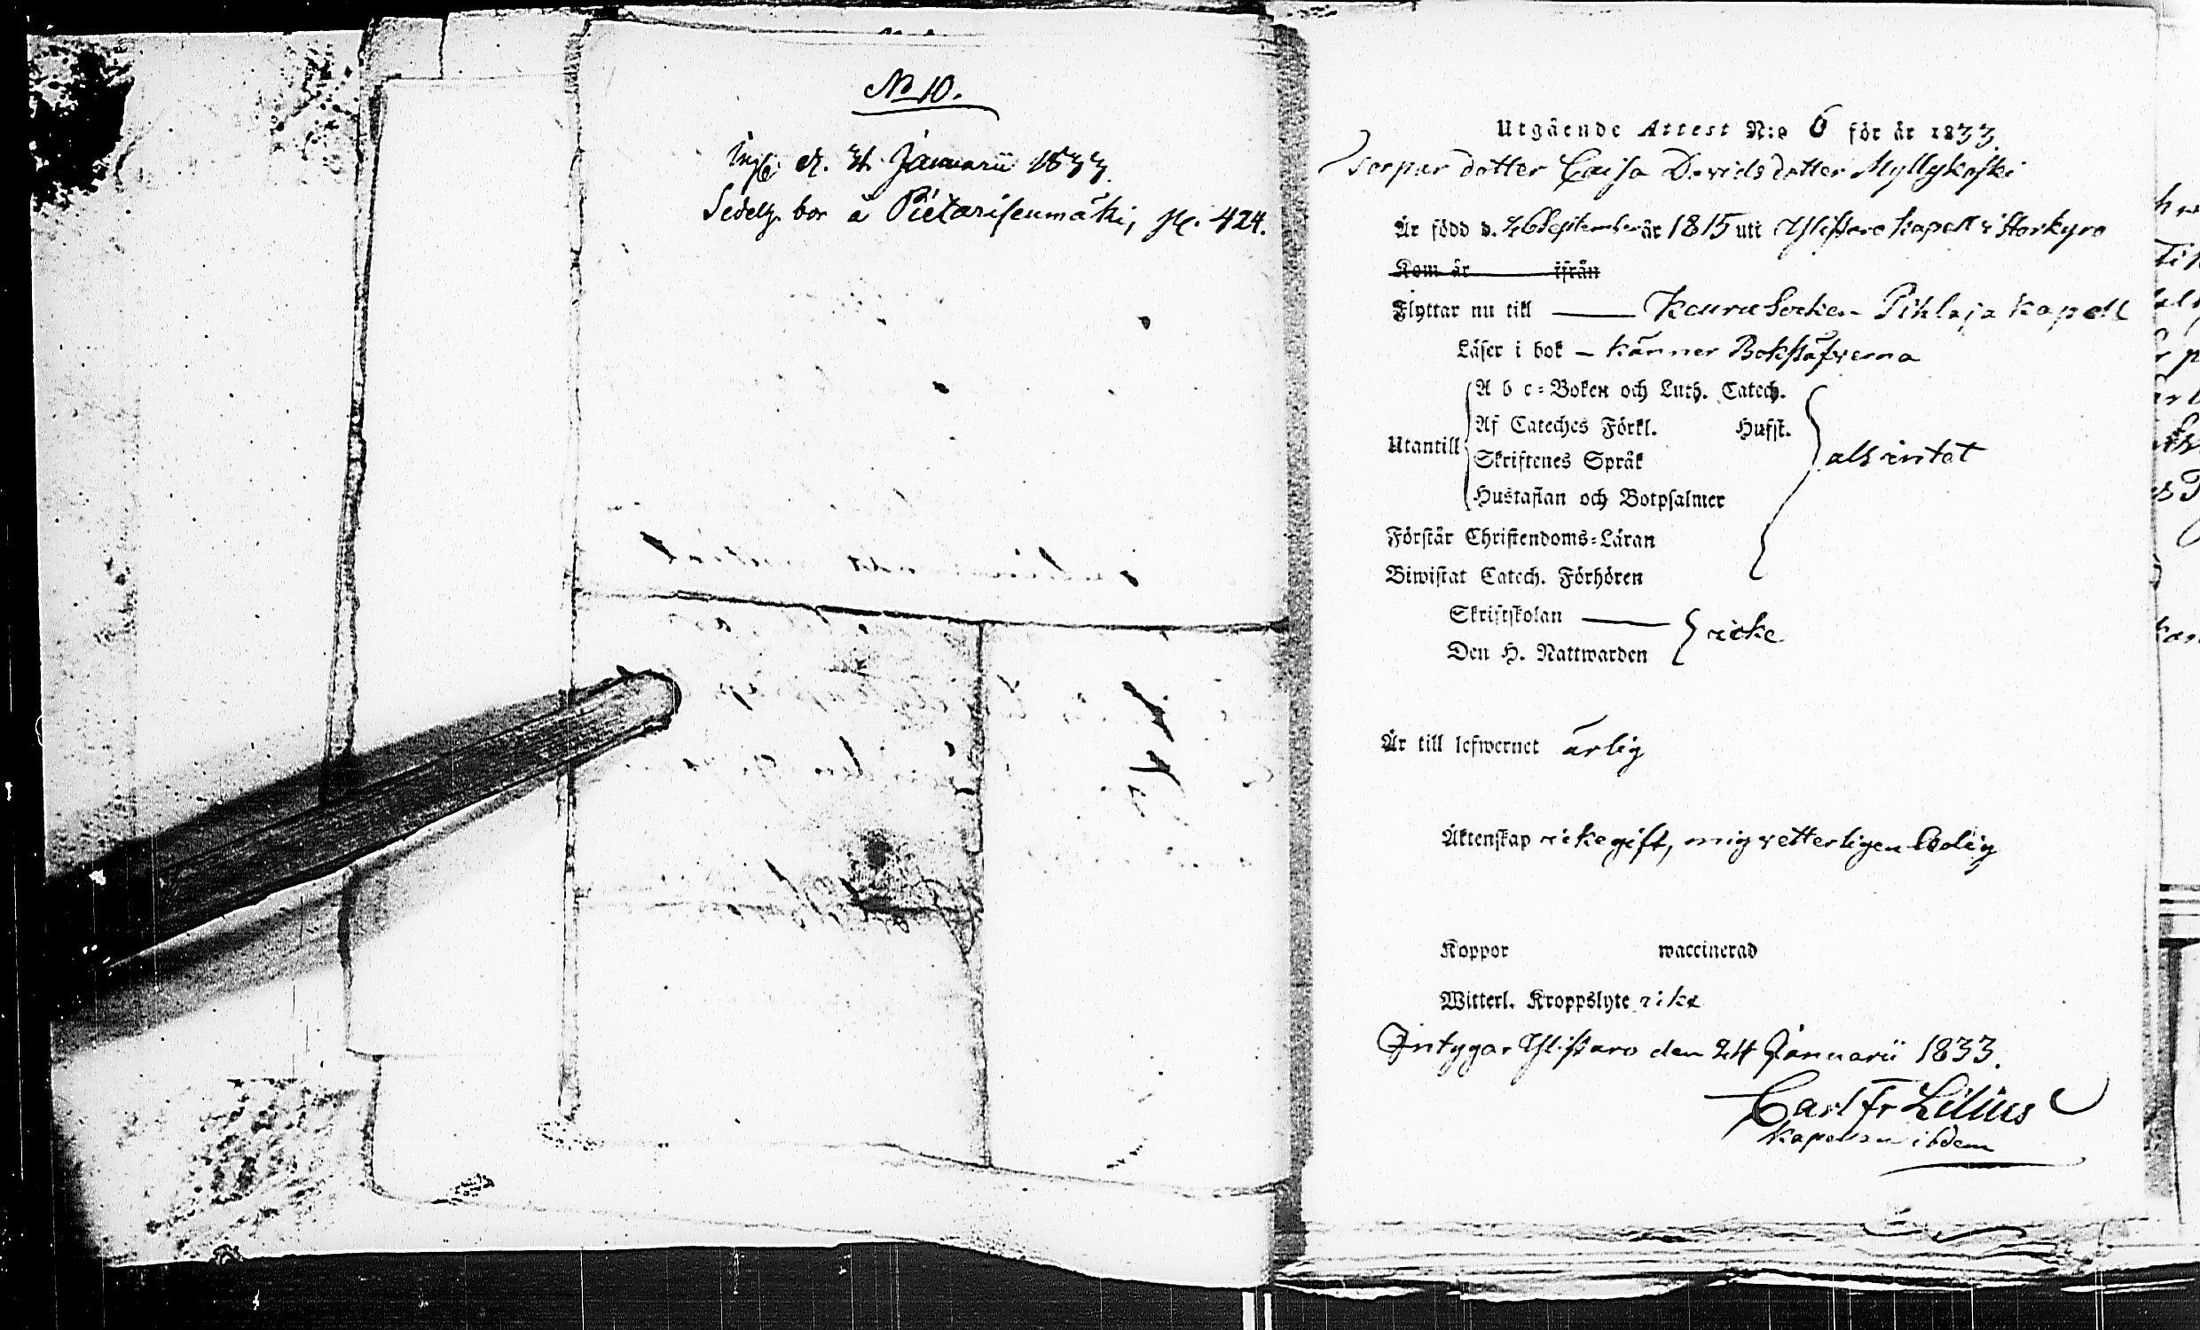 No 10.
d. 31 Januarii 1833
Sedelg. bor å Pietarisenmäki, p. 424.
Utgående Attest N:o 6 för år 1833.
Torpar dotter Caisa Davids dotter Myllykoski
År född d. 26 September år 1815 uti Ylistaro kapell i Storkyro
Kom år ifrån
Flyttar nu till — Keuru Socken Pihlaja kapell
Läser i bok — känner Bokstäfverna
A b c-Boken och Luth. Catech.
Af Cateches Förkl. Hufst.
Utantill
Skriftenes Språk
alls intet
Hustaflan och Botpsalmer
Förstår Christendoms-Läran
Biwistat Catech. Förhören
Skriftskolan —
icke
Den H. Nattwarden
År till lefwernet ärlig
Äktenskap icke gift, mig vetterligen ledig
Koppor waccinerad
Witterl. Kroppslyte icke
Intygar Ylistaro den 24 Januarii 1833.
Carl Fr Lilius
Kapellan ibdem